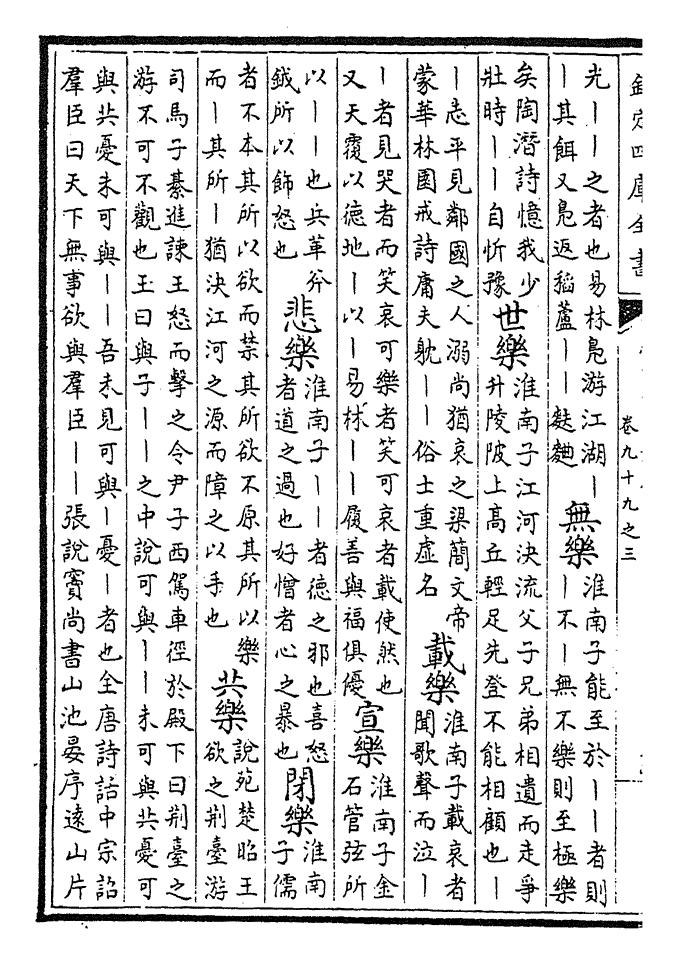 欽定四庫全書
卷九十九之三
光||之者也易林鳧游江湖|
|其餌又鳧返稻蘆||麩麯
無樂
淮南子能至於||者則
|不|無不樂則至極樂
矣陶潛詩憶我少
壯時||自忻豫
世樂
淮南子江河決流父子兄弟相遺而走爭
升陵阪上高丘輕足先登不能相顧也|
|志平見鄰國之人溺尚猶哀之梁簡文帝
蒙華林園戒詩庸夫躭||俗士重虛名
載樂
淮南子載哀者
聞歌聲而泣|
|者見哭者而笑哀可樂者笑可哀者載使然也
又天覆以德地|以|易林||履善與福俱優
宣樂
淮南子金
石管弦所
以||也兵革斧
鉞所以飾怒也
悲樂
淮南子||者德之邪也喜怒
者道之過也好憎者心之暴也
閉樂
淮南
子儒
者不本其所以欲而禁其所欲不原其所以樂
而|其所|猶決江河之源而障之以手也
共樂
說苑楚昭王
欲之荊臺游
司馬子綦進諫王怒而擊之令尹子西駕車徑於殿下曰荊臺之
游不可不觀也王曰與子||之中說可與||未可與共憂可
與共憂未可與||吾未見可與|憂|者也全唐詩話中宗詔
羣臣曰天下無事欲與羣臣||張說竇尚書山池晏序遠山片